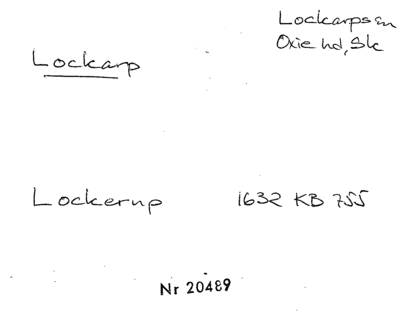 Lockarps sn
Oxie hd, Sk
Lockarp
Lockerup 1632 KB 755
Nr 20489